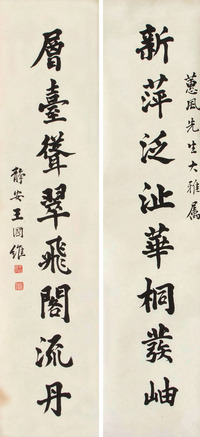 蕙風先生大雅屬
新萍泛沚華桐發岫
層臺聳翠飛閣流丹
靜安王國維